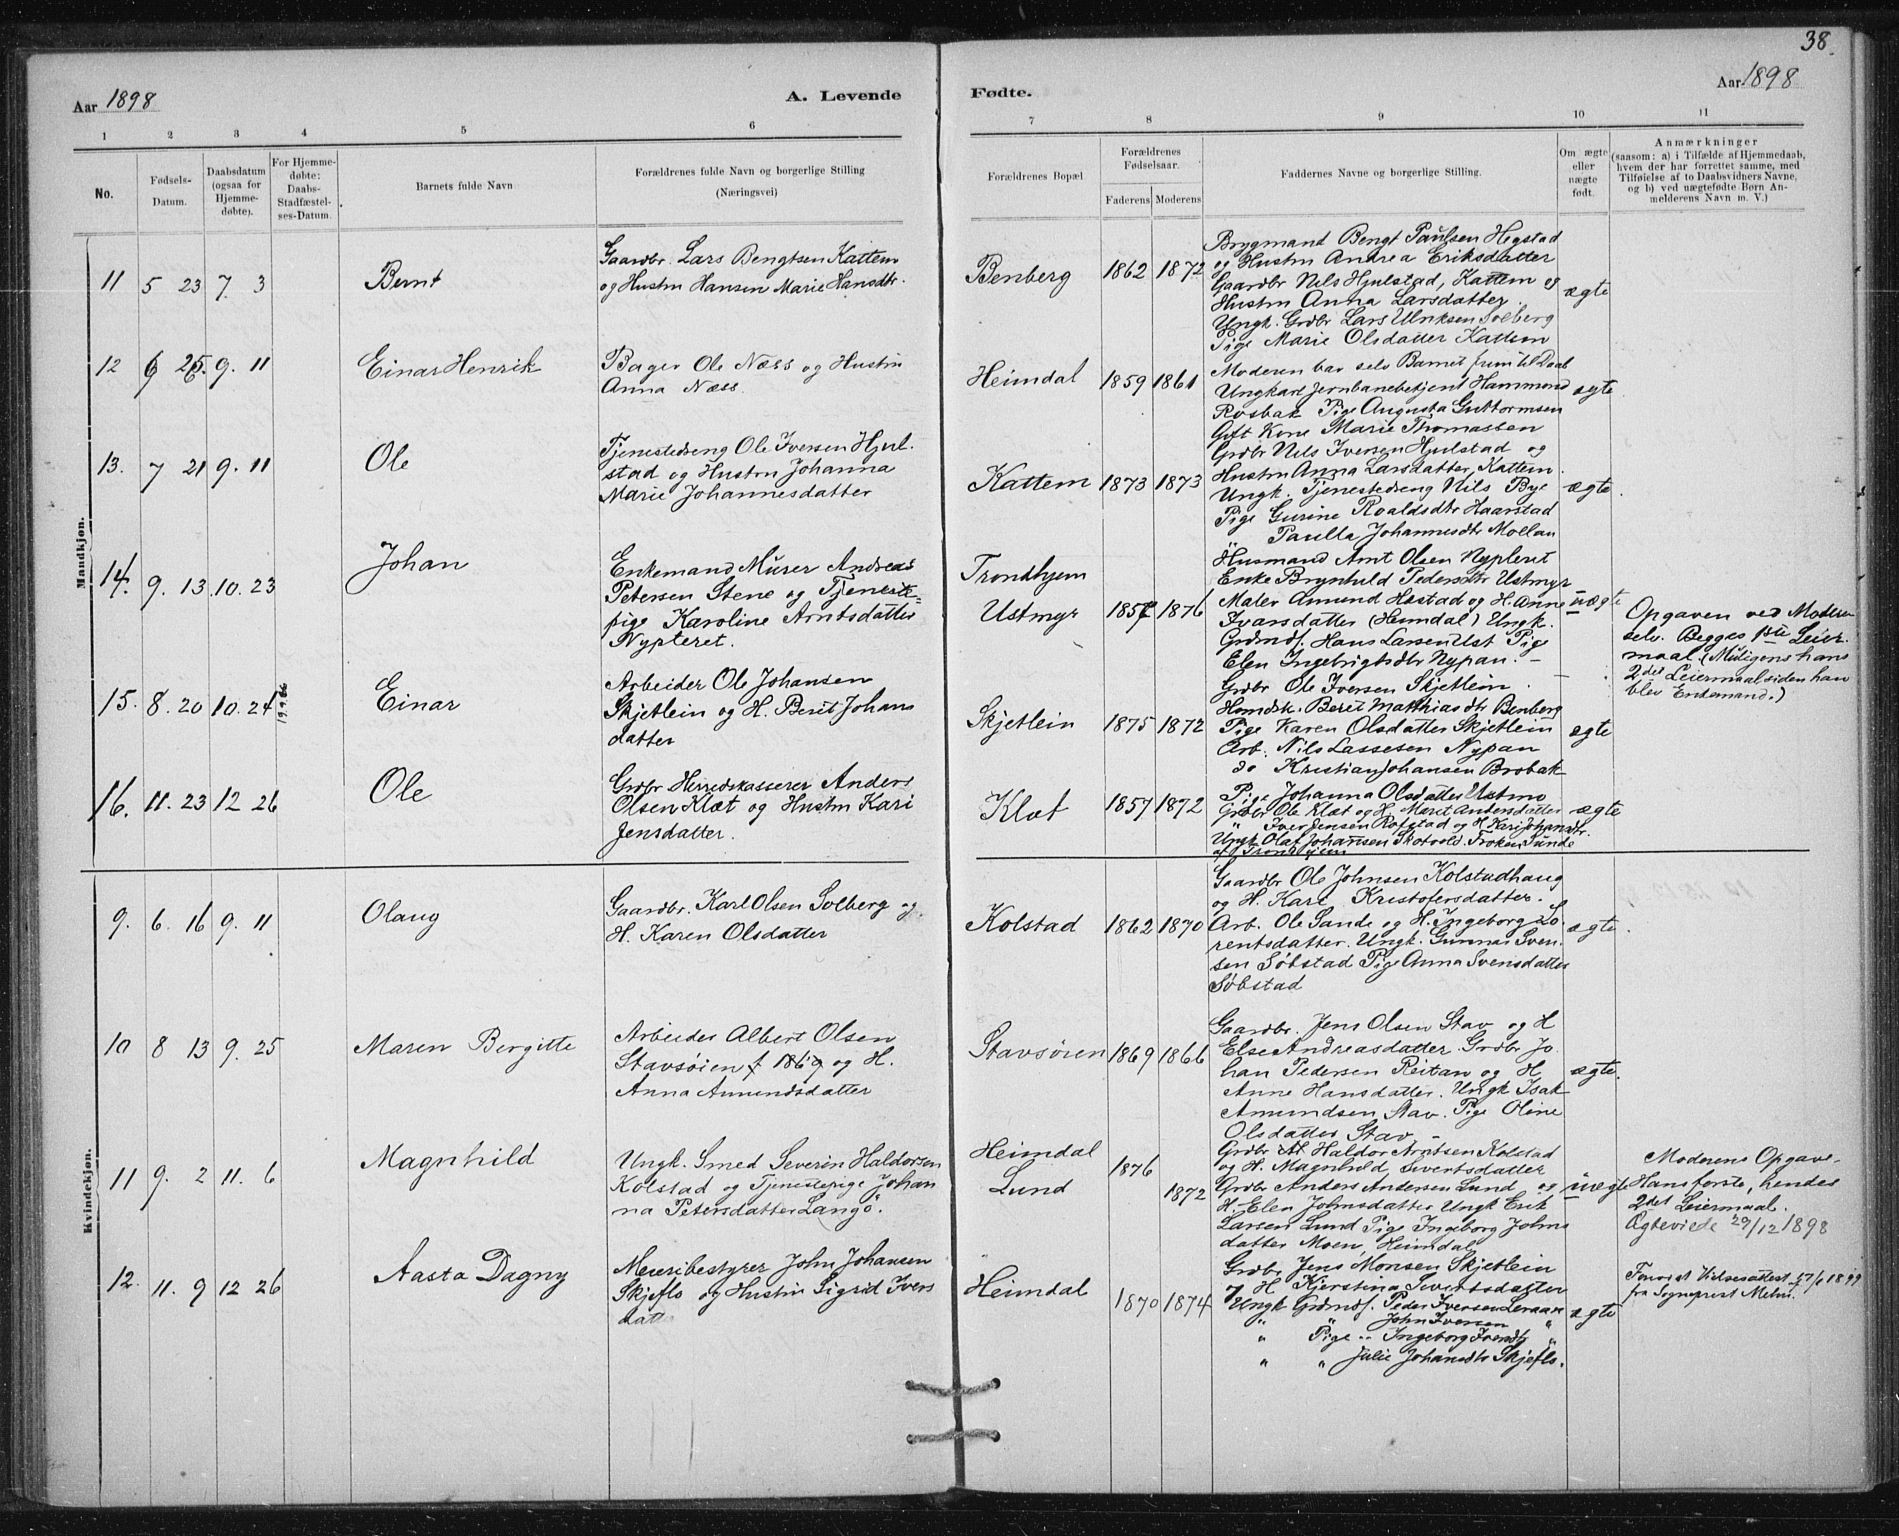 38.
Aar 1898
A. Levende
Fødte.
Aar 1898
1 2 3 4 5 6 7 8 9 10 11
No.
Fødsels-Datum.
Daabsdatum (ogsaa for Hjemme-døbte).
For Hjemme-døbte: Daabs-Stadfæstel-ses-Datum.
Barnets fulde Navn
Forældrenes fulde Navn og borgerlige Stilling
(Næringsvei)
Forældrenes Bopæl
Forældrenes Fødselsaar.
Faderens Moderens
Faddernes Navne og borgerlige Stilling.
Om ægte eller uægte født.
Anmærkninger
(saasom: a) i Tilfælde af Hjemmedaab,
hvem der har forrettet samme, med
Tilføielse af to Daabsvidners Navne,
og b) ved uægtefødte Børn An-
melderens Navn m. V.)
Mandkjøn.
11 5 23 7. 3 Bernt
Gaardbr. Lars Bengtsen Kattem
og Hustru Hansen Marie Hansdtr.
Benberg 1862 1872
Brygmand Bengt Paulsen Hegstad
og Hustru Andrea Eriksdatter
Gaardbr Nils Hjulstad, Kattem og
Hustru Anna Larsdatter.
Ungk. Grdbr Lars Ulriksen Solberg
Pige Marie Olsdatter Kattem
ægte
12 6 25. 9. 11 Einar Henrik
Bager Ole Næss og Hustru
Anna Næss.
Heimdal 1859 1861
Moderen bar selv Barnet frem til Daab
Ungkarl Jernbanebetjent Hammond
Rosbak Pige Augusta Guttormsen
Gift Kone Marie Thomassen
ægte
13. 7 21 9. 11 Ole
Tjenestedreng Ole Iversen Hjul-
stad og Hustru Johanna
Marie Johannesdatter
Kattem 1873 1873
Grdbr Nils Iversen Hjulstad og
Hustru Anna Larsdatter, Kattem.
Ungk. Tjenestedreng Nils Bye
Pige Gurine Roaldsdtr Haarstad
" Paulla Johannesdtr Mollan
ægte
14. 9. 13 10. 23 Johan
Enkemand Murer Andreas
Petersen Stene og Tjeneste-
pige Karoline Arntsdatter
Nypteret.
Trondhjem
Ustmyr 1857 1876
Husmand Arnt Olsen Nypteret
Enke Brynhild Pedersdtr Ustmyr
Maler Amund Hestad og H. Anne
Ivarsdatter (Heimdal) Ungk.
Grdmdf. Hans Larsen Ust Pige
Elen Ingebrigtsdtr Nypan. -
uægte
Opgaven ved Moderen
selv. Begges 1ste Leier-
maal. (Muligens hans
2det Leiermaal siden han
blev Enkemand.)
15. 8. 20 10. 24
Einar
Arbeider Ole Johansen
Skjetlein og H. Beret Johans
datter
Skjetlein 1875 1872
Grdbr Ole Iversen Skjetlein.
Homdsk. Beret Matthiasdtr Benberg
Pige Karen Olsdatter Skjetlein
Arb. Nils Lassesen Nypan
do Kristian Johansen Brobak
Pige Johanna Olsdatter Ustmo
ægte
16. 11. 23 12 26 Ole
Grdbr Herredskasserer Anders
Olsen Klæt og Hustru Kari
Jensdatter.
Klæt 1857 1872
Grdbr Ole Klæt og H. Maret Andersdatter
" Iver Jensen Rofstad og H. Kari Johansdtr.
Ungk Olaf Johansen Skotvold. Frøken Sunde
af Trondhjem
ægte
Kvindekjøn.
9. 6. 16 9. 11 Olaug
Gaardbr. Karl Olsen Solberg og
H. Karen Olsdatter
Kolstad 1862 1870
Gaardbr Ole Johnsen Kolstadhaug
og H. Kari Kristofersdatter.
Arb. Ole Sande og H. Ingeborg Lo-
rentsdatter. Ungk. Gunnar Sven-
sen Söbstad Pige Anna Svensdatter
Söbstad
ægte.
10 8 13 9. 25 Maren Bergitte
Arbeider Albert Olsen
Stavsøien f 1869 og H.
Anna Amundsdatter
Stavsøien 1869 1866
Gaardbr. Jens Olsen Stav og H
Else Andreasdatter. Grdbr Jo-
han Pedersen Reitan og H
Anne Hansdatter. Ungk Isak
Amundsen Stav. Pige Oline
Olsdatter Stav -
ægte.
11 9. 2 11. 6 Magnhild
Ungk. Smed Severin Haldorsen
Kolstad og Tjenestepige Johan
na Petersdatter Langö.
Heimdal 1876
Lund 1872
Grdbr Haldor Arntsen Kolstad
og H. Magnhild Sivertsdatter
Grdbr Anders Andersen Lund og
H. Elen Johnsdatter Ungk Erik
Larsen Lund Pige Ingeborg Johns
datter Moen, Heimdal
uægte
Moderens Opgave,
Hans første, hendes
2det Leiermaal.
Ægteviede 29/12 1898
12. 11. 9 12 26 Aasta Dagny
Meieribestyrer John Johansen
Skjeflo og Hustru Sigrid Ivers
datter
Heimdal 1870 1874
Grdbr Jens Monsen Skjetlein
og H Kjerstina Sivertsdatter
Ungk Grdmdf. Peder Iversen Leraan
" " John Iversen "
" Pige " Ingeborg Iversdtr "
" " Julie Johansdtr Skjeflo.
ægte
Forevist Vielsesattest 17/6 1899
fra Sogneprest